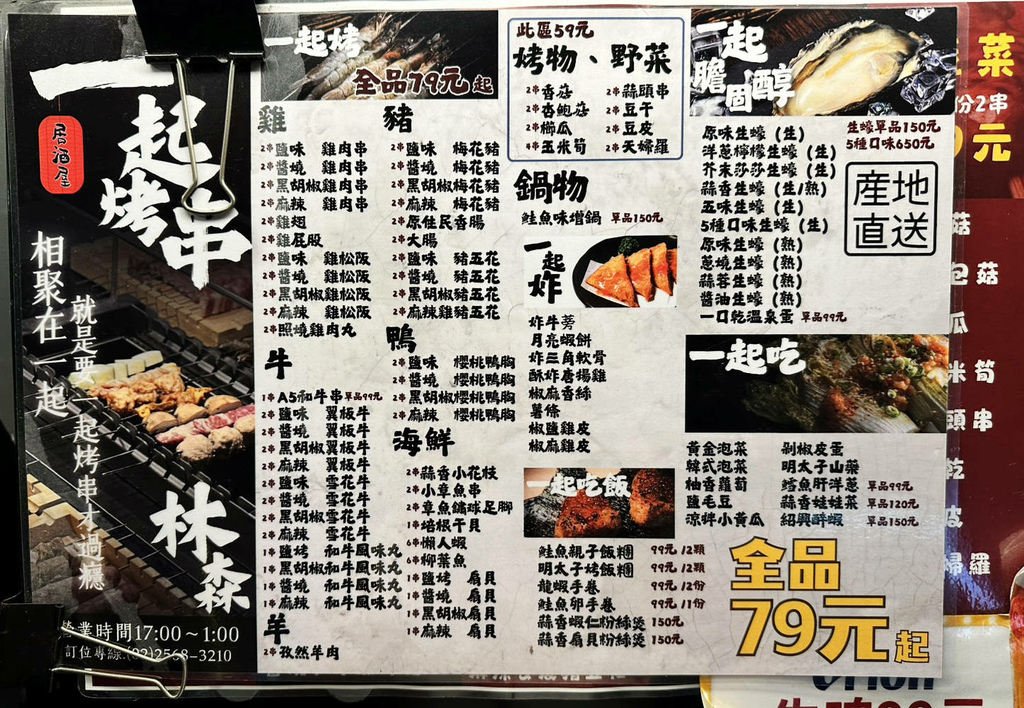 一起烤串
居酒屋
相聚在一起
就是要一起烤串才過癮
林森
營業時間17:00~1:00
訂位專線:(02)2568-3210
一起烤
全品79元起
雞
2串鹽味 雞肉串
2串醬燒 雞肉串
2串黑胡椒雞肉串
2串麻辣 雞肉串
2串雞翅
2串雞屁股
2串鹽味 雞松阪
2串醬燒 雞松阪
2串黑胡椒雞松阪
2串麻辣 雞松阪
2串照燒雞肉丸
牛
1串A5和牛串單品99元
2串鹽味 翼板牛
2串醬燒 翼板牛
2串黑胡椒翼板牛
2串麻辣 翼板牛
2串鹽味 雪花牛
2串醬燒 雪花牛
2串黑胡椒雪花牛
2串麻辣 雪花牛
1串鹽烤 和牛風味丸
1串黑胡椒和牛風味丸
1串醬燒 和牛風味丸
1串麻辣 和牛風味丸
羊
2串孜然羊肉
豬
2串鹽味 梅花豬
2串醬燒 梅花豬
2串黑胡椒 梅花豬
2串麻辣 梅花豬
2串原住民香腸
2串大腸
2串鹽味 豬五花
2串醬燒 豬五花
2串黑胡椒豬五花
2串麻辣雞豬五花
鴨
2串鹽味 櫻桃鴨胸
2串醬燒 櫻桃鴨胸
2串黑胡椒櫻桃鴨胸
2串麻辣 櫻桃鴨胸
海鮮
2串蒜香小花枝
2串小章魚串
2串章魚鏢球足腳
1串培根干貝
6串懶人蝦
6串柳葉魚
1串鹽烤 扇貝
1串醬燒 扇貝
1串黑胡椒扇貝
1串麻辣 扇貝
此區59元
烤物、野菜
2串香菇
2串杏鮑菇
2串櫛瓜
4串玉米筍
2串蒜頭串
2串豆干
2串豆皮
2串天婦羅
鍋物
鮭魚味增鍋 單品150元
一起炸
炸牛蒡
月亮蝦餅
炸三角軟骨
酥炸唐揚雞
椒麻香絲
薯條
椒鹽雞皮
椒麻雞皮
一起吃飯
鮭魚親子飯糰 99元/2顆
明太子烤飯糰 99元/2顆
龍蝦手卷 99元/2份
鮭魚卵手卷 99元/1份
蒜香蝦仁粉絲煲 150元
蒜香扇貝粉絲煲 150元
一起膽固醇
生蠔單品150元
5種口味650元
原味生蠔(生)
洋蔥檸檬生蠔(生)
芥末莎莎生蠔(生)
蒜香生蠔(生/熟)
五味生蠔(生)
5種口味生蠔(生)
原味生蠔(熟)
蔥燒生蠔(熟)
蒜蓉生蠔(熟)
醬油生蠔(熟)
一口乾溫泉蛋 單品99元
産地
直送
一起吃
黃金泡菜
韓式泡菜
柚香蘿蔔
鹽毛豆
涼拌小黃瓜
剁椒皮蛋
明太子山藥
鱈魚肝洋蔥 單品99元
蒜香娃娃菜 單品120元
紹興醉蝦 單品150元
全品
79元起
菜
份2串
元
菇
包菇
瓜
米筍
頭串
婦羅